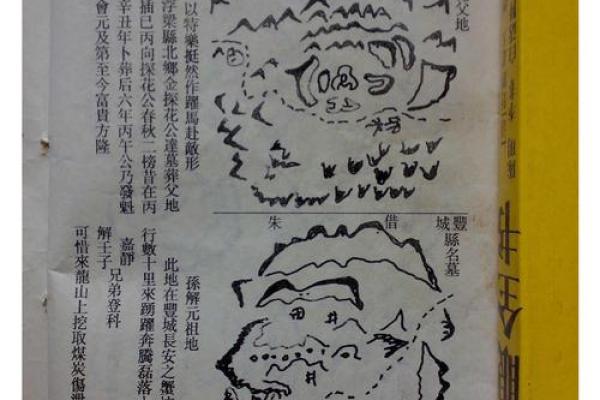 父地
以特樂挺然作躍馬赴敵形
浮梁縣北鄉金探花公達墓葬父地
插巳丙向探花公春秋二榜昔在丙
辛丑年卜葬后六年丙午公乃發魁
會元及第至今富貴方隆
豐縣名墓
城
借
朱
孫解元祖地
此地在豐城長安之蟹
行數十里來踴躍奔騰磊落
嘉靜
兄弟登科
解壬子
可惜來龍山上挖取煤炭傷
全书